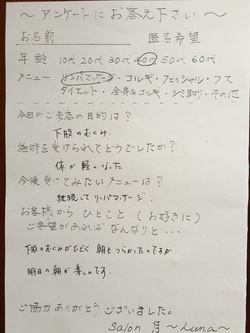 ～アンケートにお答え下さい～
お名前　匿名希望
年齢 10代 20代 30代 40代 50代 60代
メニュー リンパマッサージ・コルギ・フェイシャル・フス
ダイエット・全身&コルギ・シミ取り・その他
今日のご来店の目的は?
下肢のむくみ
施術を受けられてどうでしたか?
体が軽くなった
今後受けてみたいメニューは?
継続してリンパマッサージ
お客様からひとこと(お好きに)
ご要望があればなんなりと…
下肢のむくみがひどく朝もつらかったのですが
明日の朝が楽しみです
ご協力ありがとうございました。
Salon 月～Luna～